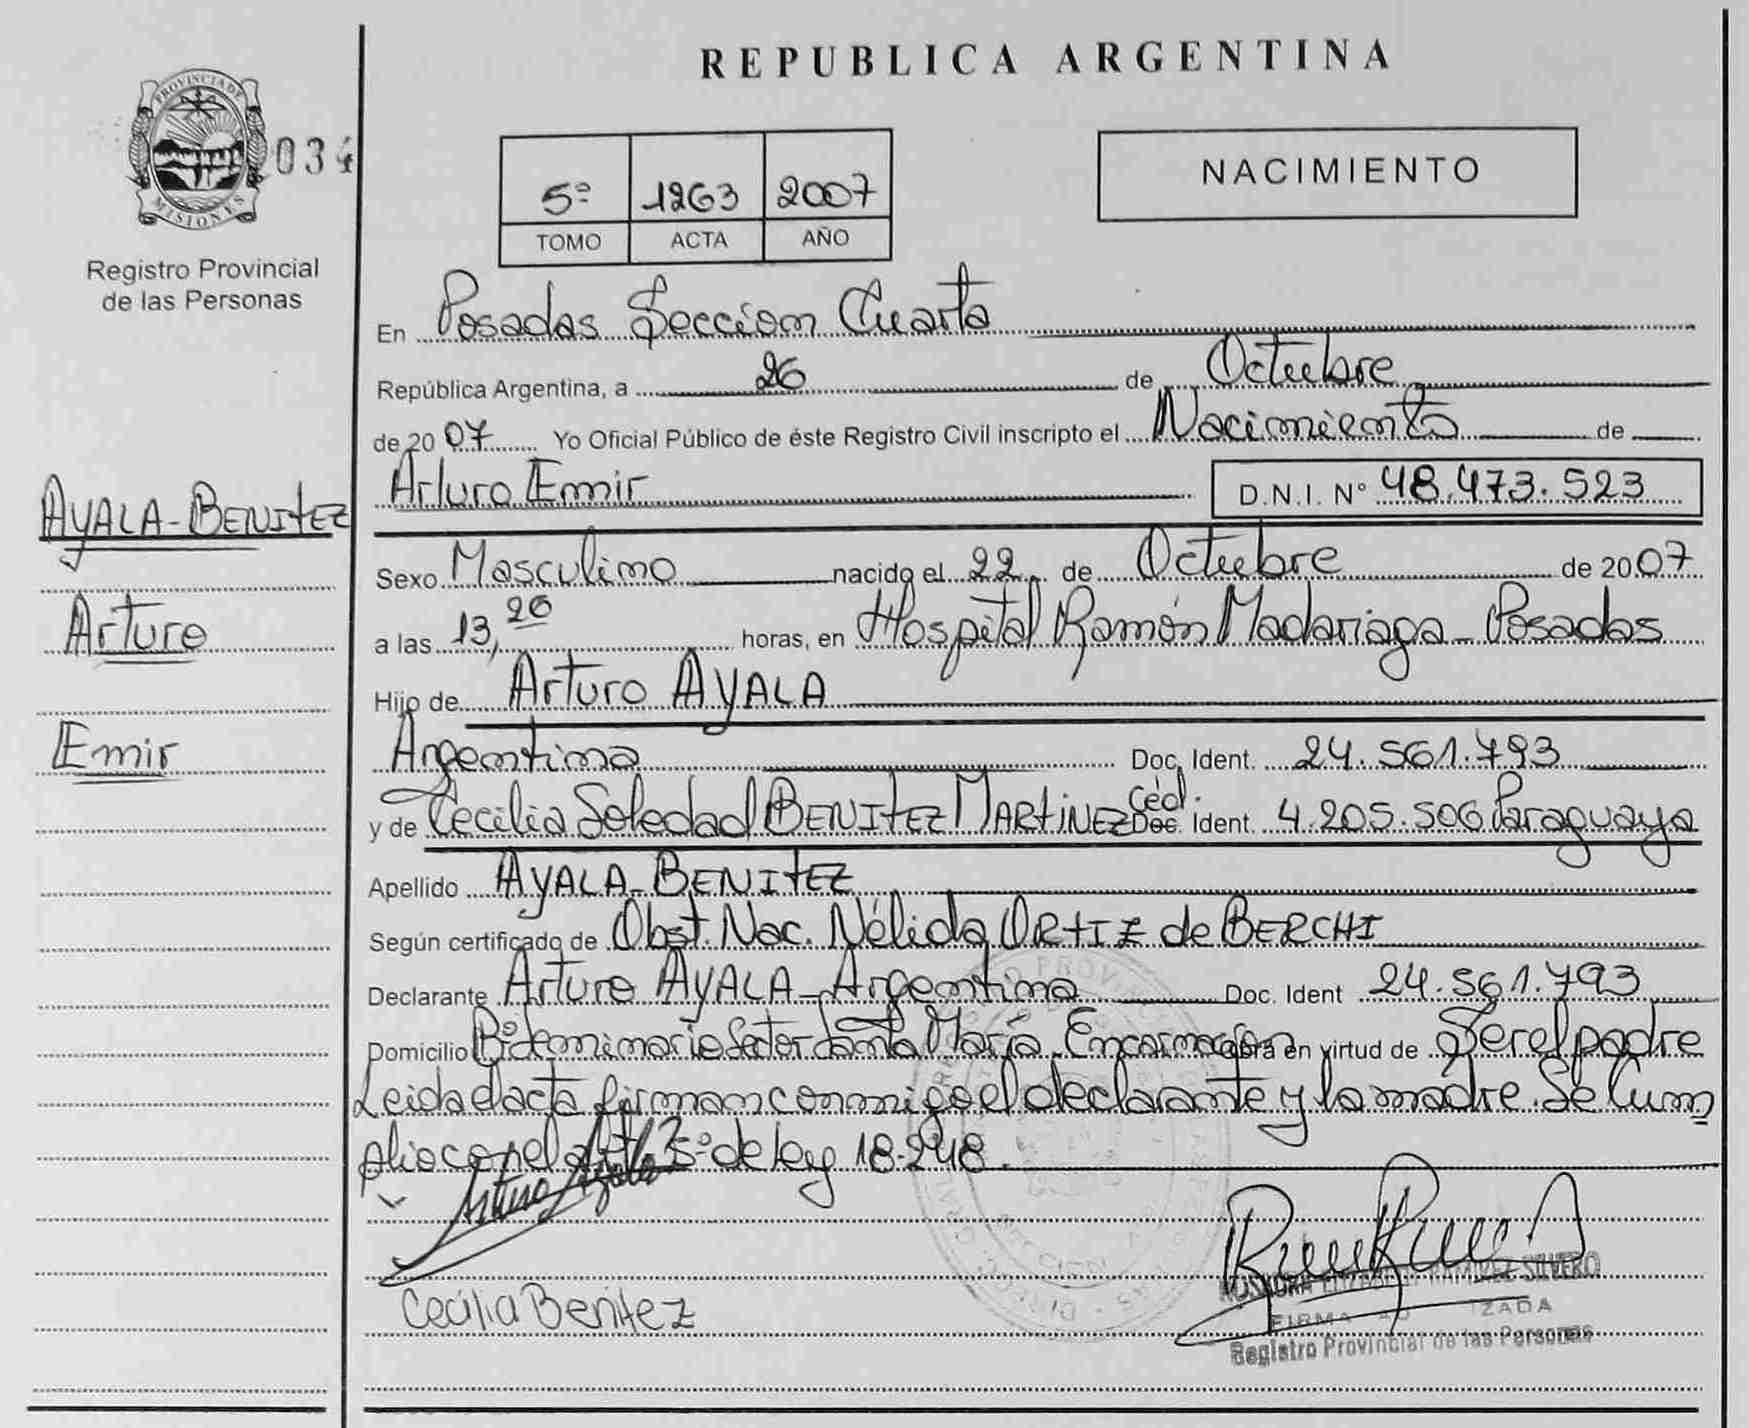 REPUBLICA ARGENTINA
PROVINCIA DE
MISIONES
034
Registro Provincial
de las Personas
5º 1263 2007
TOMO ACTA AÑO
NACIMIENTO
En Posadas Seccion Cuarta
República Argentina, a 26 de Octubre
de 2007 Yo Oficial Público de éste Registro Civil inscripto el Nacimiento de
Arturo Emir D.N.I. Nº 48.473.523
AYALA-BENITEZ
Arturo
Emir
Sexo Masculino nacido el 22 de Octubre de 2007
a las 13,20 horas, en Hospital Ramón Madariaga - Posadas
Hijo de Arturo AYALA
Argentino Doc. Ident. 24.561.793
y de Cecilia Soledad BENITEZ MARTINEZ Céd. Doc. Ident. 4.205.506 Paraguaya
Apellido AYALA-BENITEZ
Según certificado de Obst. Nac. Nélida ORTIZ de BERCHI
Declarante Arturo AYALA - Argentino Doc. Ident 24.561.793
Domicilio Sector Santa María Encarnación obra en virtud de Ser el padre
Leida el acta firman conmigo el declarante y la madre. Se Cum
plio con el Art 5º de ley 18.248.
Arturo Ayala
Cecilia Benitez
RAMIREZ SILVERO
FIRMA
Registro Provincial de las Personas